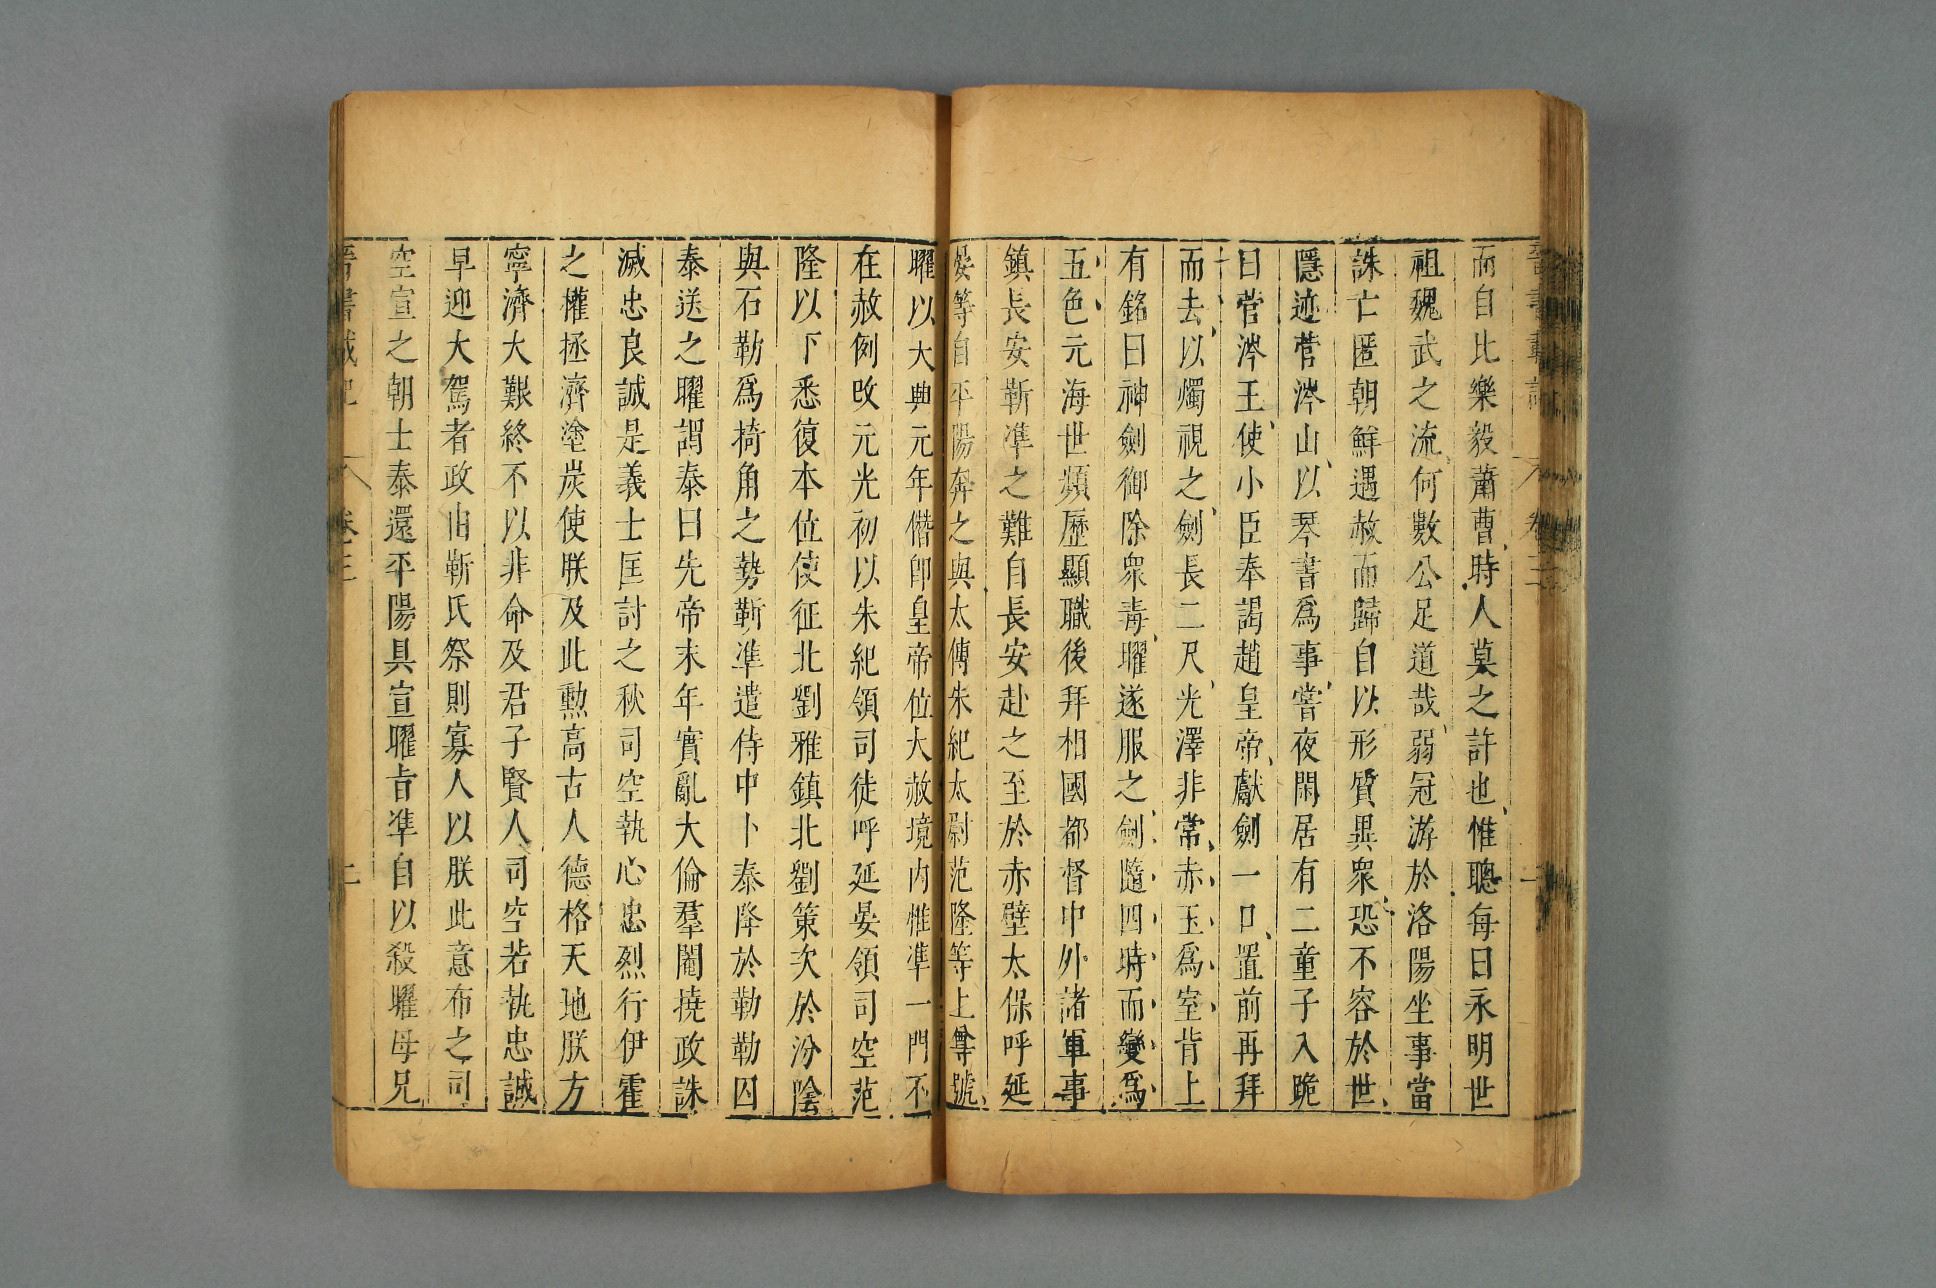 晉書載記 卷三 一
而自比樂毅蕭曹時人莫之許也惟聰每曰永明世
祖魏武之流何數公足道哉弱冠游於洛陽坐事當
誅亡匿朝鮮遇赦而歸自以形質異衆恐不容於世
隱迹菅涔山以琴書爲事嘗夜閑居有二童子入跪
曰菅涔王使小臣奉謁趙皇帝獻劍一口置前再拜
而去以燭視之劍長二尺光澤非常赤玉爲室背上
有銘曰神劍御除衆毒曜遂服之劍隨四時而變爲
五色元海世頻歷顯職後拜相國都督中外諸軍事
鎮長安靳準之難自長安赴之至於赤壁太保呼延
晏等自平陽奔之與太傅朱紀太尉范隆等上尊號
曜以大興元年僭卽皇帝位大赦境內惟準一門不
在赦例改元光初以朱紀領司徒呼延晏領司空范
隆以下悉復本位使征北劉雅鎮北劉策次於汾陰
與石勒爲掎角之勢靳準遣侍中卜泰降於勒勒囚
泰送之曜謂泰曰先帝末年實亂大倫羣閹撓政誅
滅忠良誠是義士匡討之秋司空執心忠烈行伊霍
之權拯濟塗炭使朕及此勲高古人德格天地朕方
寧濟大艱終不以非命及君子賢人司空若執忠誠
早迎大駕者政由靳氏祭則寡人以朕此意布之司
空宣之朝士泰還平陽具宣曜旨準自以殺曜母兄
晉書載記 卷三 二